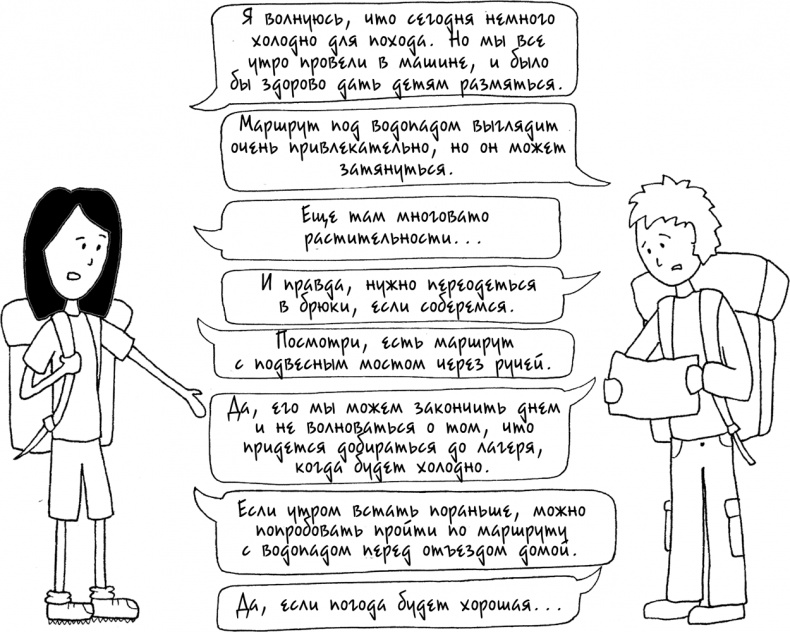 Я волнуюсь, что сегодня немного
холодно для похода. Но мы все
утро провели в машине, и было
бы здорово дать детям размяться.
Маршрут под водопадом выглядит
очень привлекательно, но он может
затянуться.
Еще там многовато
растительности...
И правда, нужно переодеться
в брюки, если соберемся.
Посмотри, есть маршрут
с подвесным мостом через ручей.
Да, его мы можем закончить днем
и не волноваться о том, что
придется добираться до лагеря,
когда будет холодно.
Если утром встать пораньше, можно
попробовать пройти по маршруту
с водопадом перед отъездом домой.
Да, если погода будет хорошая...